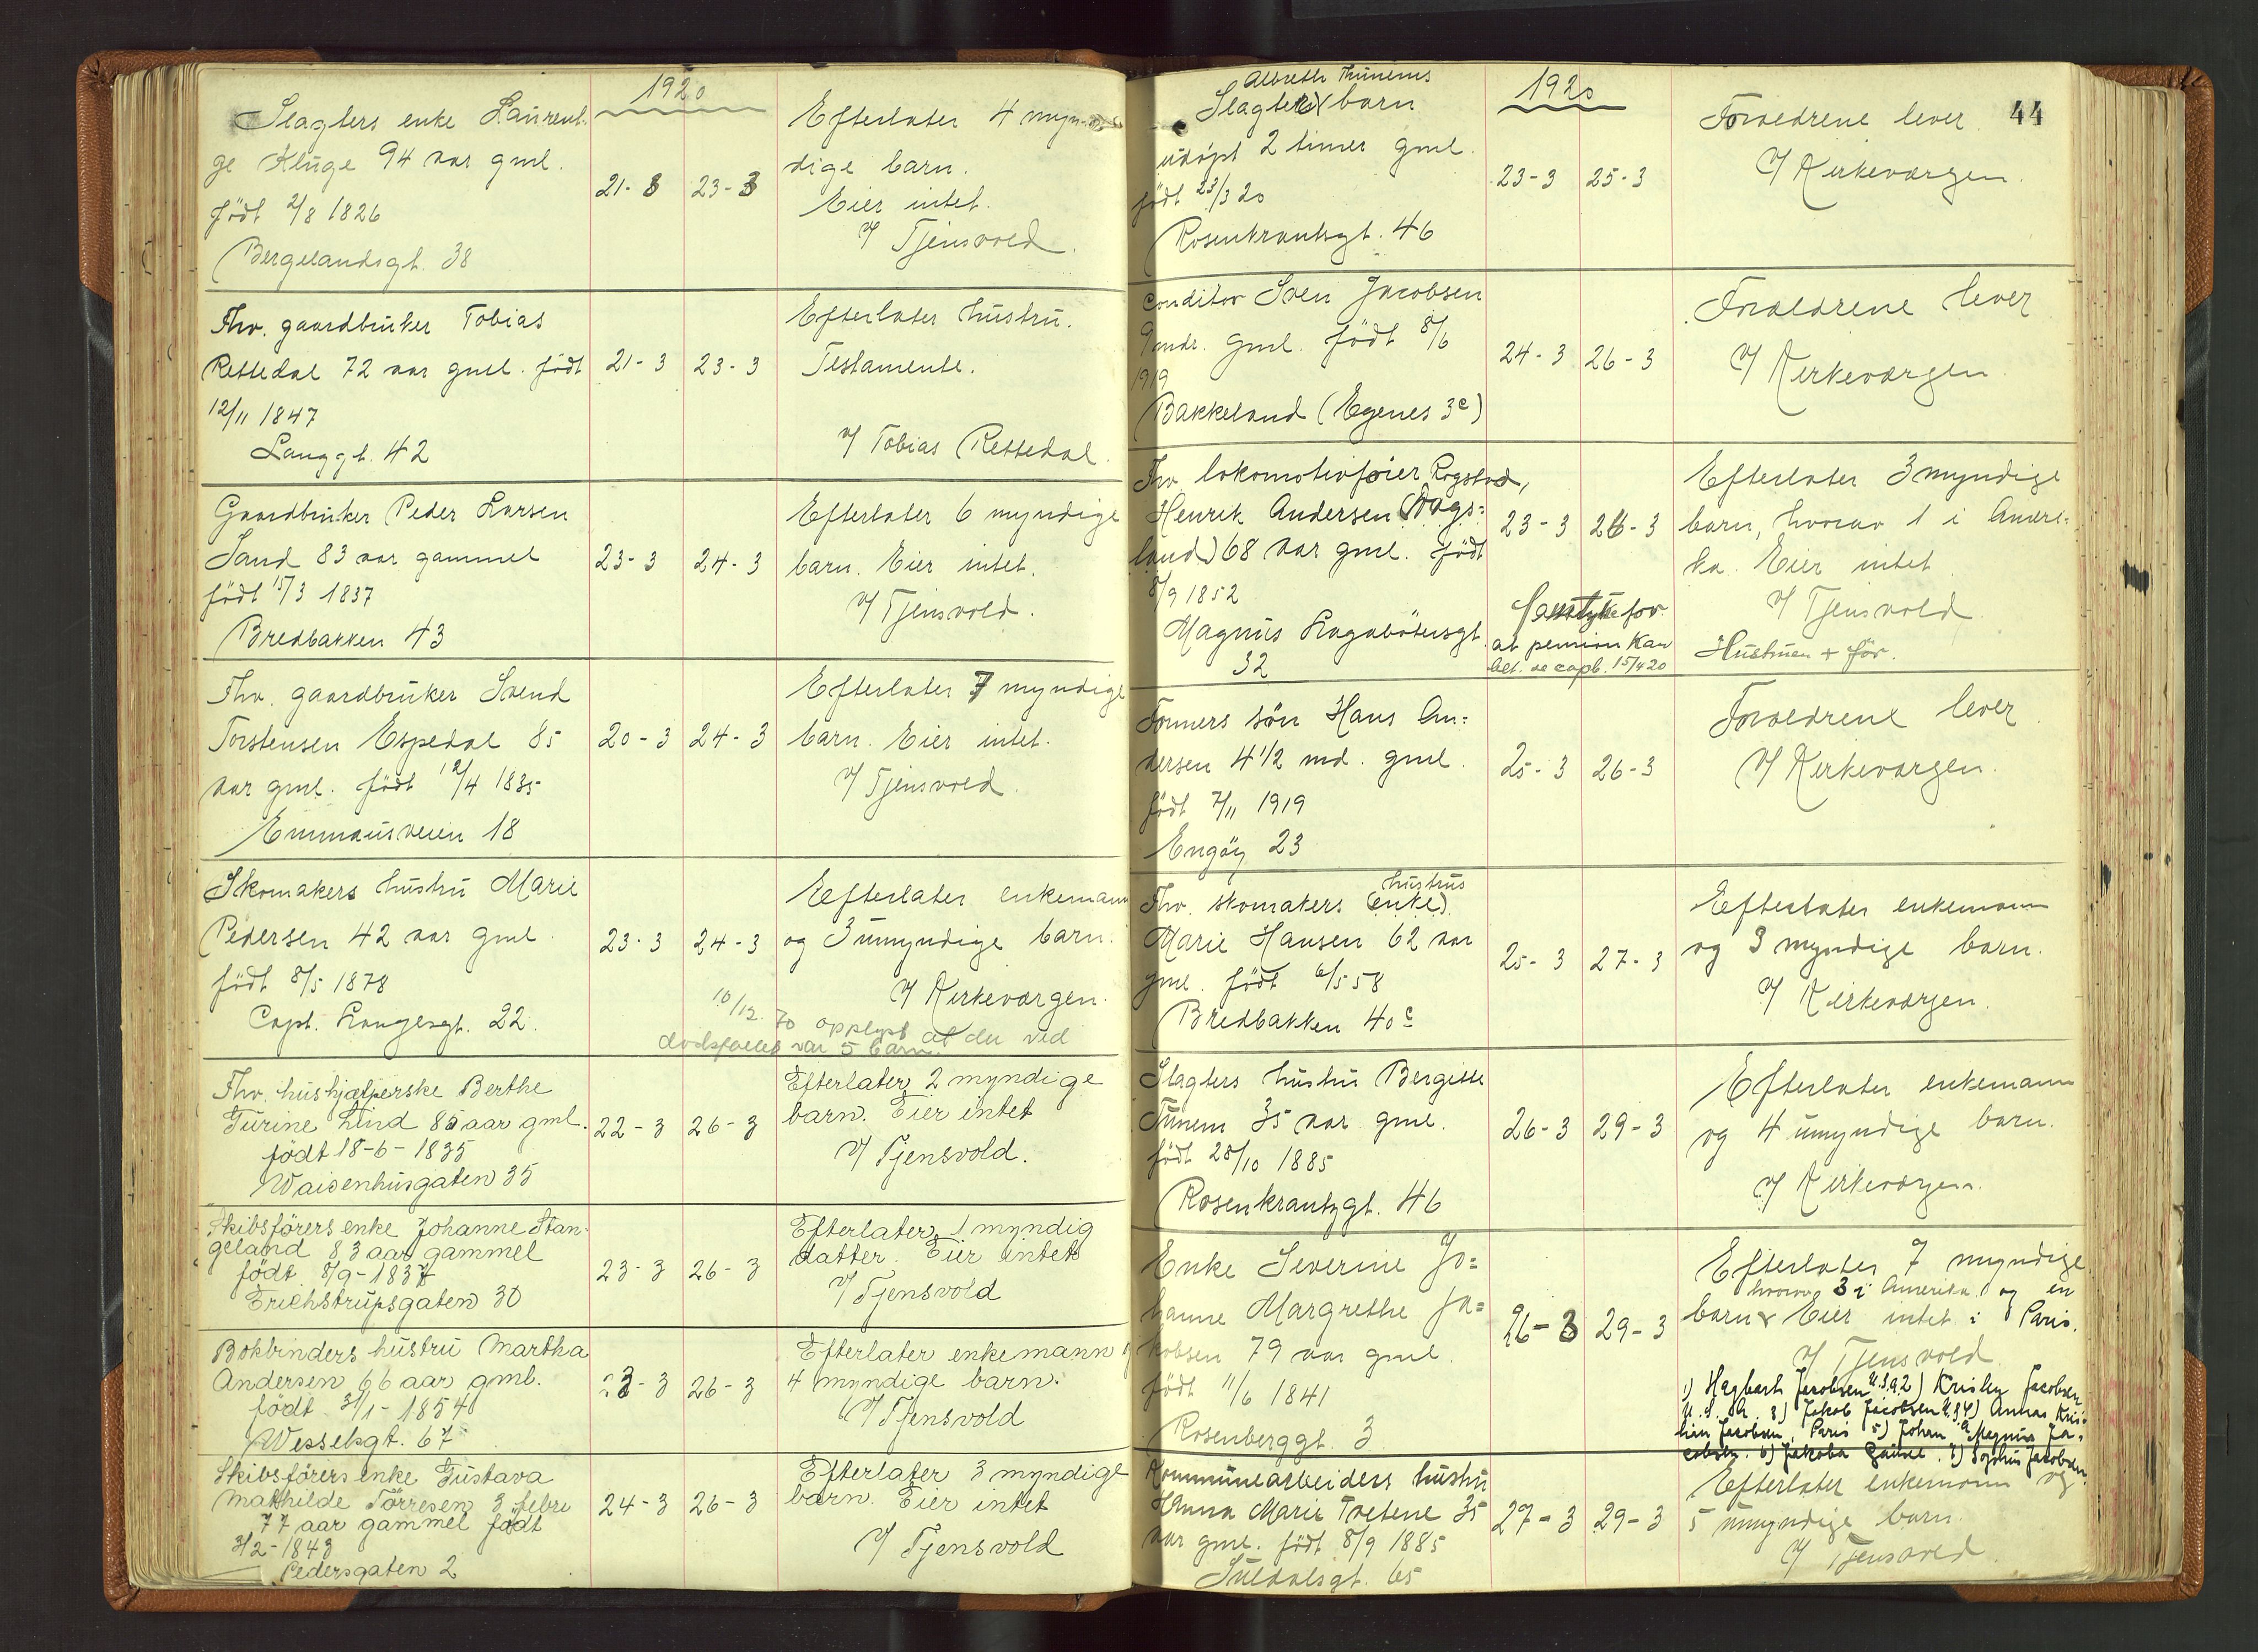 1920
Slagters enke Laurent-
ge Kluge 94 aar gml.
født 2/8 1826
Bergelandsgt. 38
21-3 23-3
Efterlater 4 myn-
dige barn.
Eier intet.
V/ Tjensvold.
Fhv. gaardbruker Tobias
Rettedal 72 aar gml. født
12/11 1847
Langgt. 42
21-3 23-3
Efterlater hustru.
Testamente.
V/ Tobias Rettedal.
Gaardbruker Peder Larsen
Sand 83 aar gammel
født 15/3 1837
Bredbakken 43
23-3 24-3
Efterlater 6 myndige
barn. Eier intet.
V/ Tjensvold.
Fhv. gaardbruker Svend
Torstensen Espedal 85
aar gml. født 12/4 1835
Emmausveien 18
20-3 24-3
Efterlater 7 myndige
barn. Eier intet.
V/ Tjensvold.
Skomakers hustru Marie
Pedersen 42 aar gml.
født 8/5 1878
Capt. Langesgt. 22.
23-3 24-3
Eefterlater enkemann
og 3 umyndige barn.
V/ Kirkevergen.
10/12. 70 opplyst at der ved
dødsfallet var 5 barn.
Fhv. hushjælperske Berthe
Turine Lind 85 aar gml.
født 18-6-1835
Waisenhusgaten 35
22-3 26-3
Efterlater 2 myndige
barn. Eier intet
V/ Tjensvold.
Skibsförers enke Johanne Stan-
geland 83 aar gammel
født 8/9-1837
Erichstrupsgaten 30
23-3 26-3
Efterlater 1 myndig
datter. Eier intet
V/ Tjensvold
Bokbinders hustru Martha
Andersen 66 aar gml.
født 31/1-1854
Wesselsgt. 67
23-3 26-3
Efterlater enkemann
4 myndige barn.
V/ Tjensvold
Skibsförers enke Gustava
Mathilde Törresen 3 febru
77 aar gammel født
3/2-1843
Pedersgaten 2
24-3 26-3
Efterlater 3 myndige
barn. Eier intet
V/ Tjensvold
1920
44
Albreth Thunems
Slagters barn
udøpt 2 timer gml.
født 23/3 20
Rosenkrantsgt. 46
23-3 25-3
Forældrene lever
V/ Kirkevergen.
Conditor Sven Jacobsen
9 mdr. gml. født 8/6
1919
Bakkeland (Egenes 3c)
24-3 26-3
Forældrene lever
V/ Kirkevergen
Fhv. lokomotivfører Rogstad,
Henrik Andersen (Vags-
land) 68 aar gml. født
8/9 1852
Magnus Lagabøtersgt.
32
23-3 26-3
for
at pension kan
15/4 20
Efterlater 3 myndige
barn, hvorav 1 i Ameri-
ka. Eier intet
V/ Tjensvold
Hustruen + før.
Formers søn Hans An-
dersen 4 1/2 md. gml.
født 7/11 1919
Engøy 23
25-3 26-3
Forældrene lever
V/ Kirkevergen.
hustrus
Fhv. skomakers (enke)
Marie Hansen 62 aar
gml. født 6/5 58
Bredbakken 40c
25-3 27-3
Efterlater enkemann
og 3 myndige barn.
V/ Kirkevergen.
Slagters hustru Bergitte
Tunem 35 aar gml.
født 28/10 1885
Rosenkrantzgt. 46
26-3 29-3
Efterlater enkemann
og 4 umyndige barn.
V/ Kirkevergen.
Enke Severine Jo-
hanne Margrethe Ja-
kobsen 79 aar gml.
født 11/6 1841
Rosenberggt. 3
26-3 29-3
Efterlater 7 myndige
hvorav 3 i Amerika og en
barn Eier intet i Paris.
V/ Tjensvold
1) Hagbart Jacobsen U.S.A. 2) Kristen Jacobsen
U.S.A. 3) Jakob Jacobsen U.S.A. 4) Annas Kris-
tian Jacobsen, Paris 5) Johan Magnus Ja-
cobsen. 6) Jakoba 7) Sophus Jacobsen
Kommunearbeiders hustru
Hanna Marie Tvetene 35
aar gml. født 8/9 1885
Suldalsgt. 65
27-3 29-3
Efterlater enkemann og
5 umyndige barn.
V/ Tjensvold